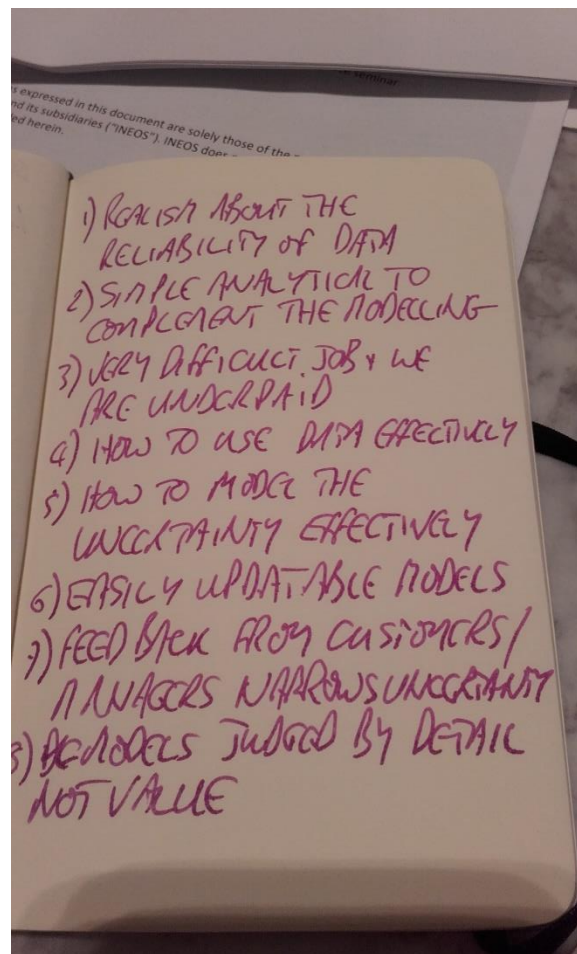 seminar
s expressed in this document are solely those of the
nd its subsidiaries ("INEOS"). INEOS does
ed herein.
1) REALISM ABOUT THE
RELIABILITY OF DATA
2) SIMPLE ANALYTICAL TO
COMPLEMENT THE MODELLING
3) VERY DIFFICULT JOB & WE
ARE UNDERPAID
4) HOW TO USE DATA EFFECTIVELY
5) HOW TO MODEL THE
UNCERTAINTY EFFECTIVELY
6) EASILY UPDATABLE MODELS
7) FEEDBACK FROM CUSTOMERS/
MANAGERS NARROWS UNCERTAINTY
8) MODELS JUDGED BY DETAIL
NOT VALUE